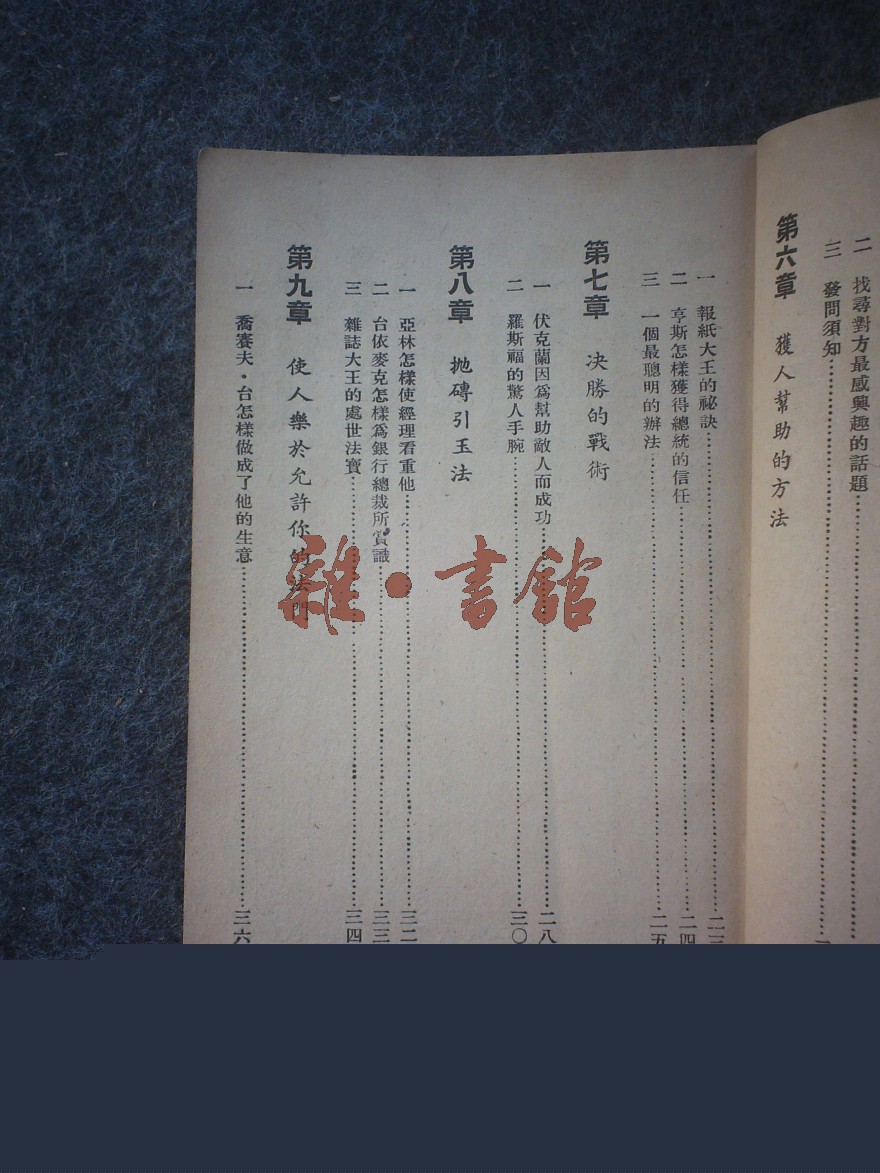 二 找尋對方最感興趣的話題
三 發問須知
第六章 獲人幫助的方法
一 報紙大王的祕訣
二 亨斯怎樣獲得總統的信任 二四
三 一個最聰明的辦法 二五
第七章 决勝的戰術
一 伏克蘭因爲幫助敵人而成功 二八
二 羅斯福的驚人手腕 三〇
第八章 拋磚引玉法
一 亞林怎樣使經理看重他 三二
二 台依麥克怎樣爲銀行總裁所賞識 三三
三 雜誌大王的處世法寶 三四
第九章 使人樂於允許你的法門
一 喬賽夫・台怎樣做成了他的生意 三六
雜・書館